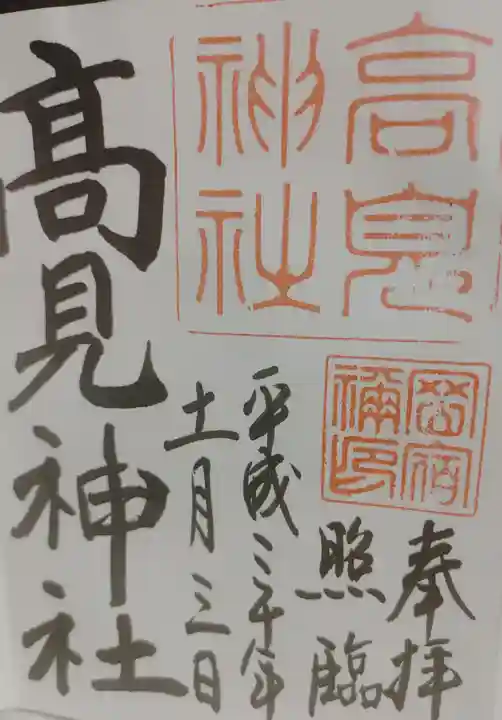 高見
神社
奉拝
照臨
平成三十年
十一月三日
髙見神社